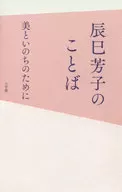 辰巳芳子の
ことば
美といのちのために
小学館